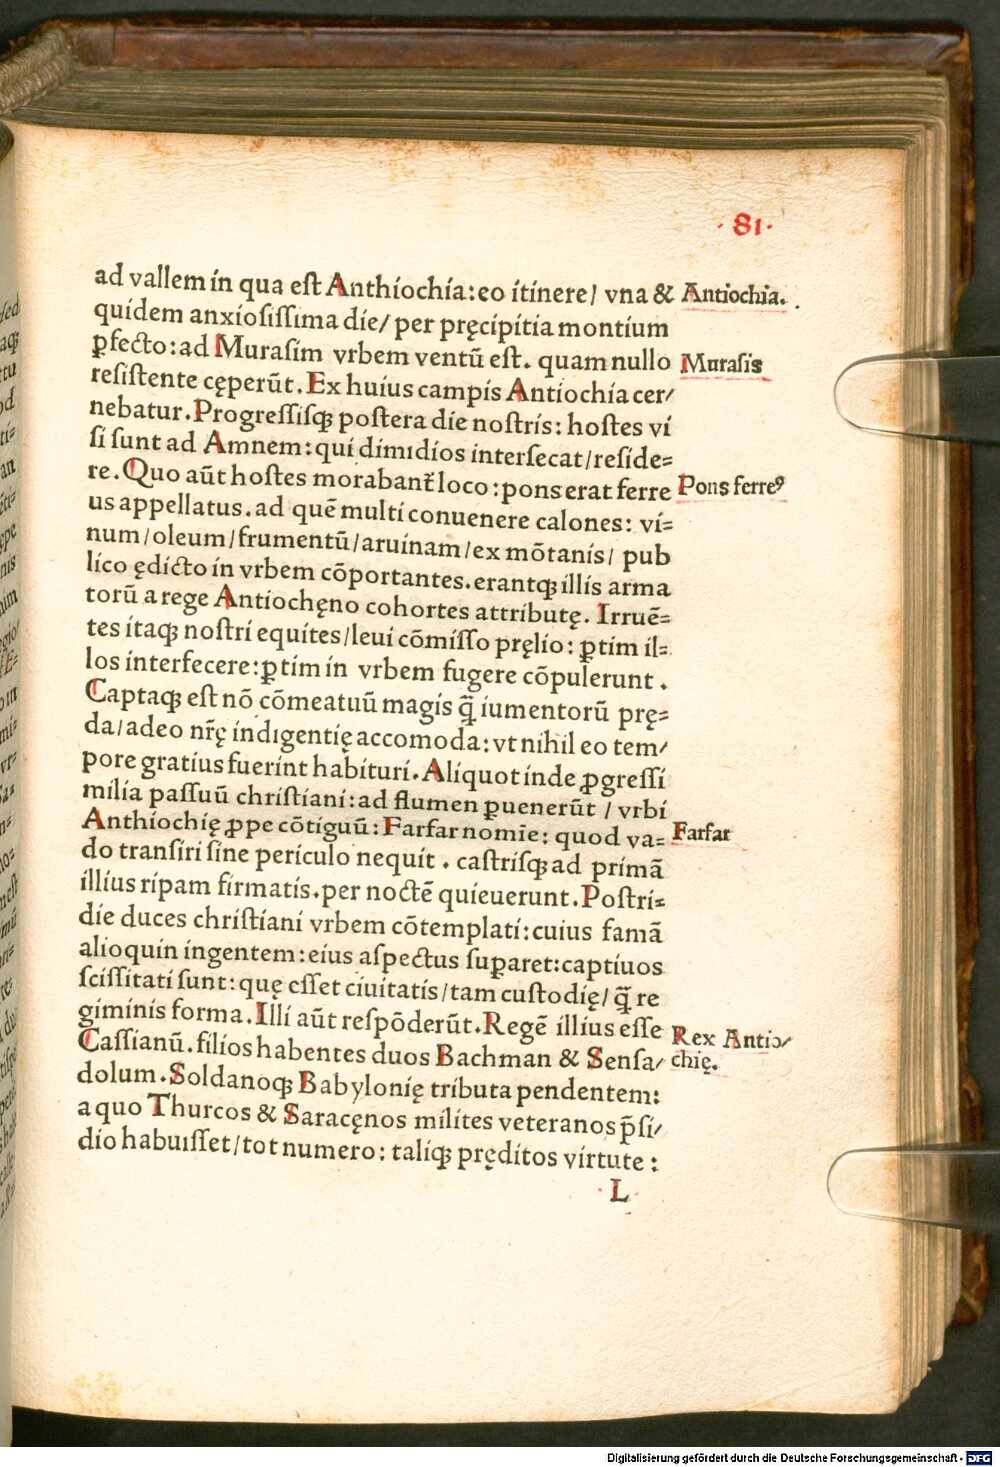 ·81·
ad vallem in qua eſt Anthiochia: eo itinere/ vna & Antiochia.
quidem anxioſiſſima die/ per pręcipitia montium
ꝑfecto: ad Muraſim vrbem ventū eſt. quam nullo Muraſis
reſiſtente cęperūt. Ex huius campis Antiochia cer/
nebatur. Progreſſiſqꝫ poſtera die noſtris: hoſtes vi
ſi ſunt ad Amnem: qui dimidios interſecat/ reſide=
re. Quo aūt hoſtes morabant᷑ loco: pons erat ferre Pons ferreꝰ
us appellatus. ad quē multi conuenere calones: vi=
num/ oleum/ frumentū/ aruinam/ ex mōtanis/ pub
lico ędicto in vrbem cōportantes. erantqꝫ illis arma
torū a rege Antiochęno cohortes attributę. Irruē=
tes itaqꝫ noſtri equites/ leui cōmiſſo pręlio: ꝑtim il=
los interfecere: ꝑtim in vrbem fugere cōpulerunt.
Captaqꝫ eſt nō cōmeatuū magis q̄ iumentorū prę=
da/ adeo nr̄ę indigentię accomoda: vt nihil eo tem/
pore gratius fuerint habituri. Aliquot inde ꝓgreſſi
milia paſſuū chriſtiani: ad flumen ꝑuenerūt / vrbi
Anthiochię ꝓpe cōtiguū: Farfar nomīe: quod va= Farfar
do tranſiri ſine periculo nequit. caſtriſqꝫ ad primā
illius ripam firmatis. per noctē quieuerunt. Poſtri=
die duces chriſtiani vrbem cōtemplati: cuius famā
alioquin ingentem: eius aſpectus ſuꝑaret: captiuos
ſciſſitati ſunt: quę eſſet ciuitatis/ tam cuſtodię/ q̄ re
giminis forma. Illi aūt reſpōderūt. Regē illius eſſe Rex Antio/
Caſſianū. filios habentes duos Bachman & Senſa/ chię.
dolum. Soldanoqꝫ Babylonię tributa pendentem:
a quo Thurcos & Saracęnos milites veteranos p̄ſi/
dio habuiſſet/ tot numero: taliqꝫ pręditos virtute:
L
Digitalisierung gefördert durch die Deutsche Forschungsgemeinschaft - DFG